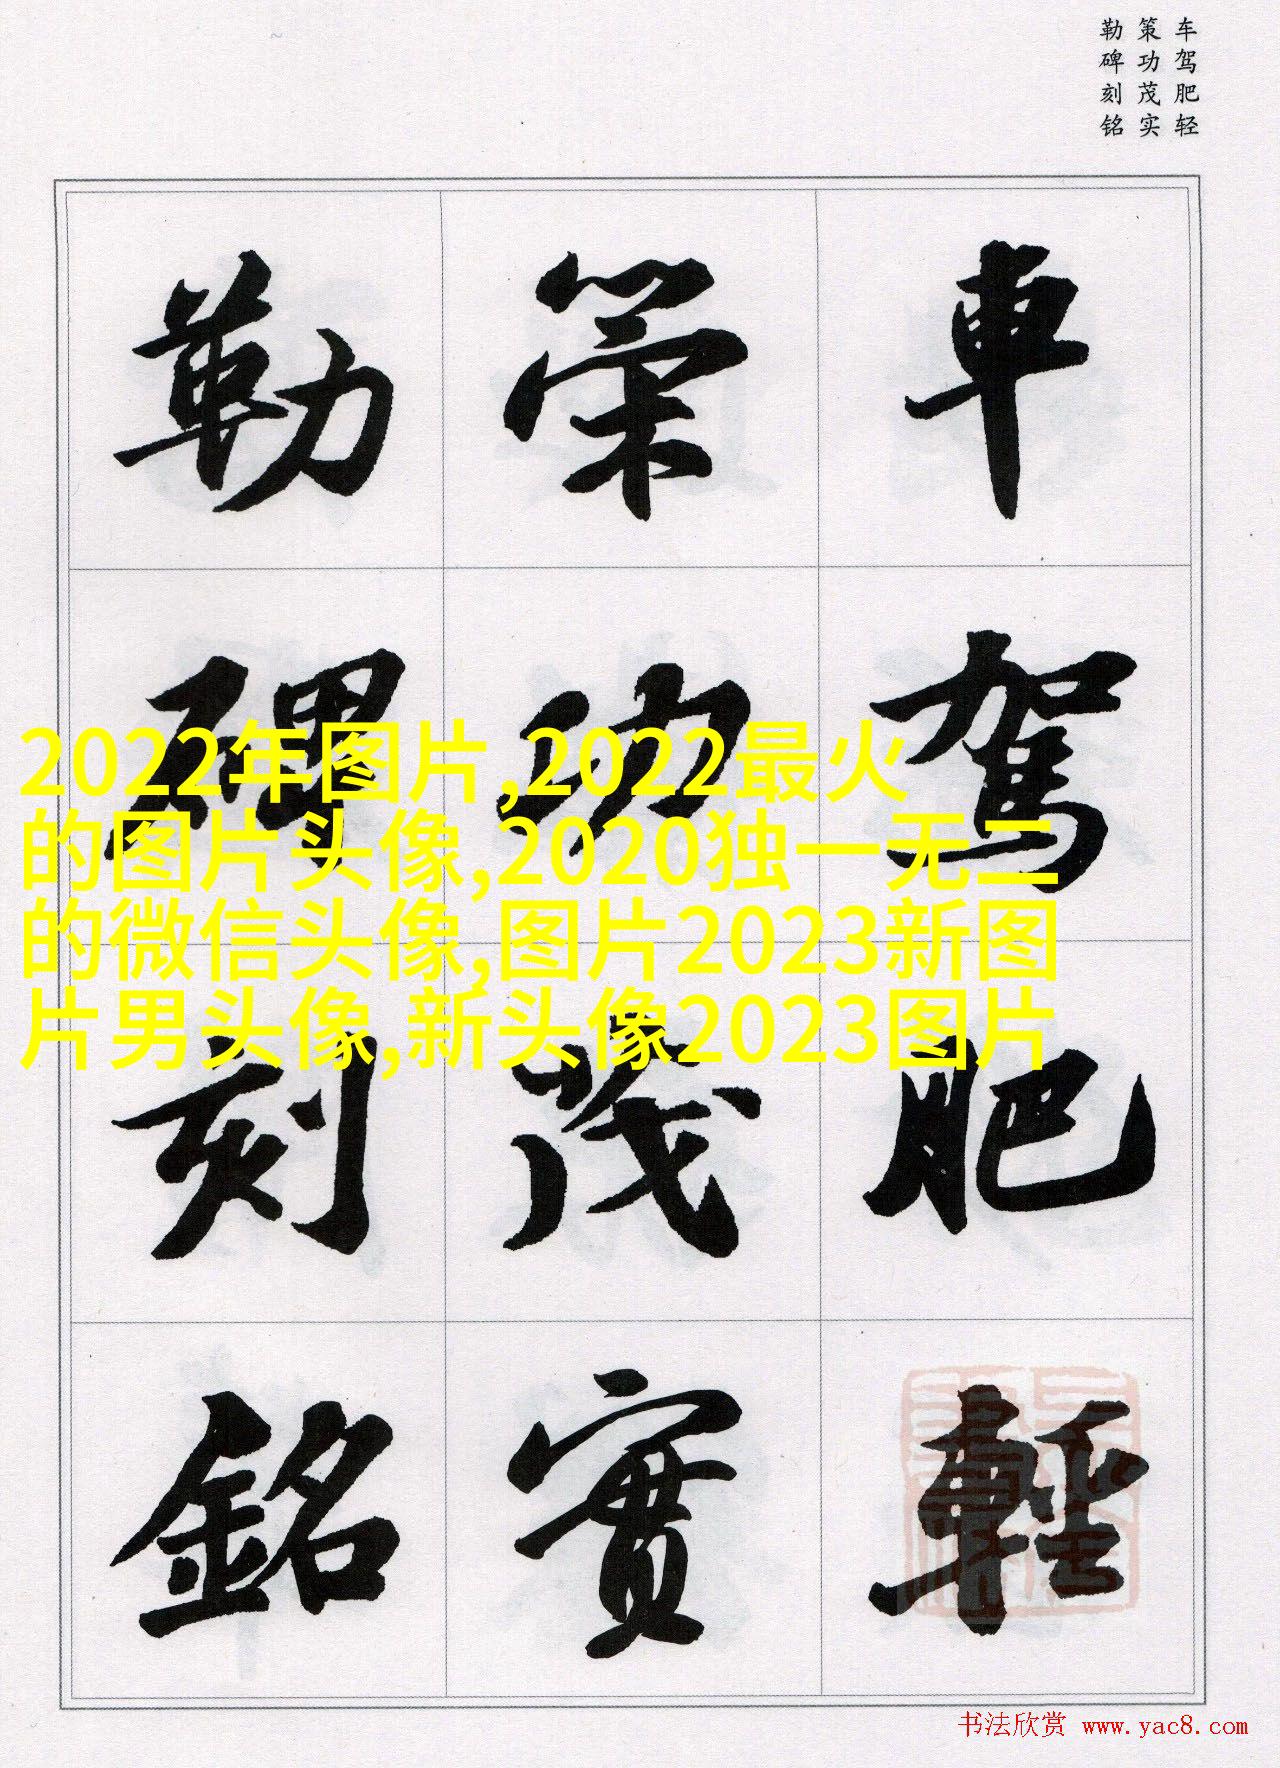 车驾肥轻
策功茂实
勒碑刻铭
車駕肥輕
策功茂實
勒碑刻銘
2022年图片,2022最火
的图片头像,2020独一无二
的微信头像,图片2023新图
片男头像,新头像2023图片
书法欣赏 www.yac8.com